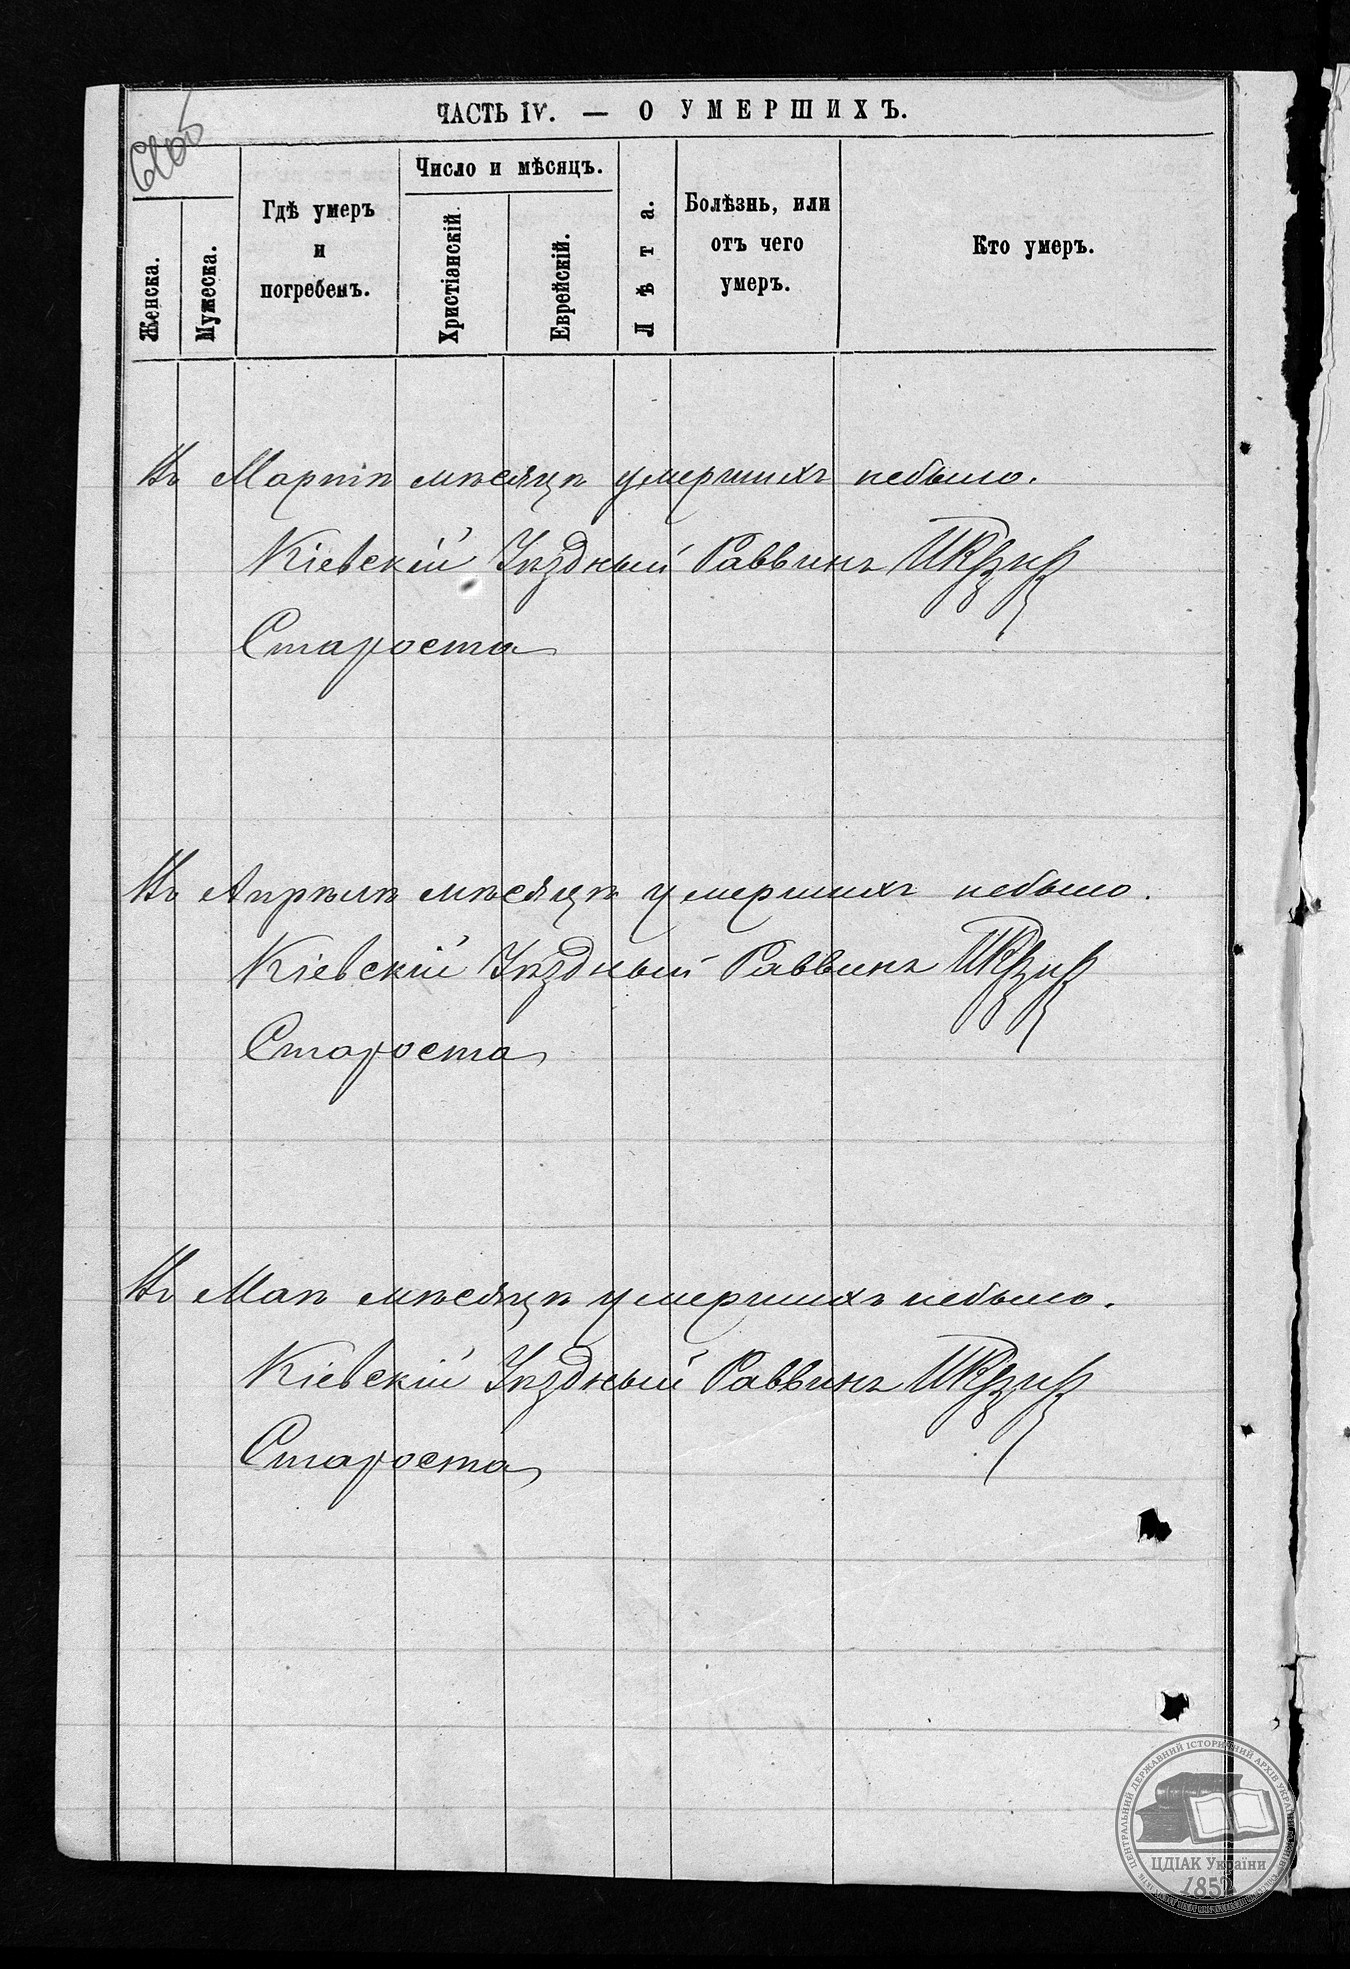 ЧАСТЬ IV. — О УМЕРШИХЪ.
Женска.
Мужеска.
Гдѣ умеръ
и
погребенъ.
Число и мѣсяцъ.
Христіанскій
Еврейскій.
Лѣта.
Болѣзнь, или
отъ чего
умеръ.
Кто умеръ.
Въ Мартѣ мѣсяцѣ умершихъ небыло.
Кіевскій Уѣздный Раввинъ
Староста
Въ Апрѣлѣ мѣсяцѣ умершихъ небыло.
Кіевскій Уѣздный Раввинъ
Староста
Въ Маѣ мѣсяцѣ умершихъ небыло.
Кіевскій Уѣздный Раввинъ
Староста
ЦЕНТРАЛЬНИЙ ДЕРЖАВНИЙ ІСТОРИЧНИЙ АРХІВ УКРАЇНИ
ЦДІАК України
1852